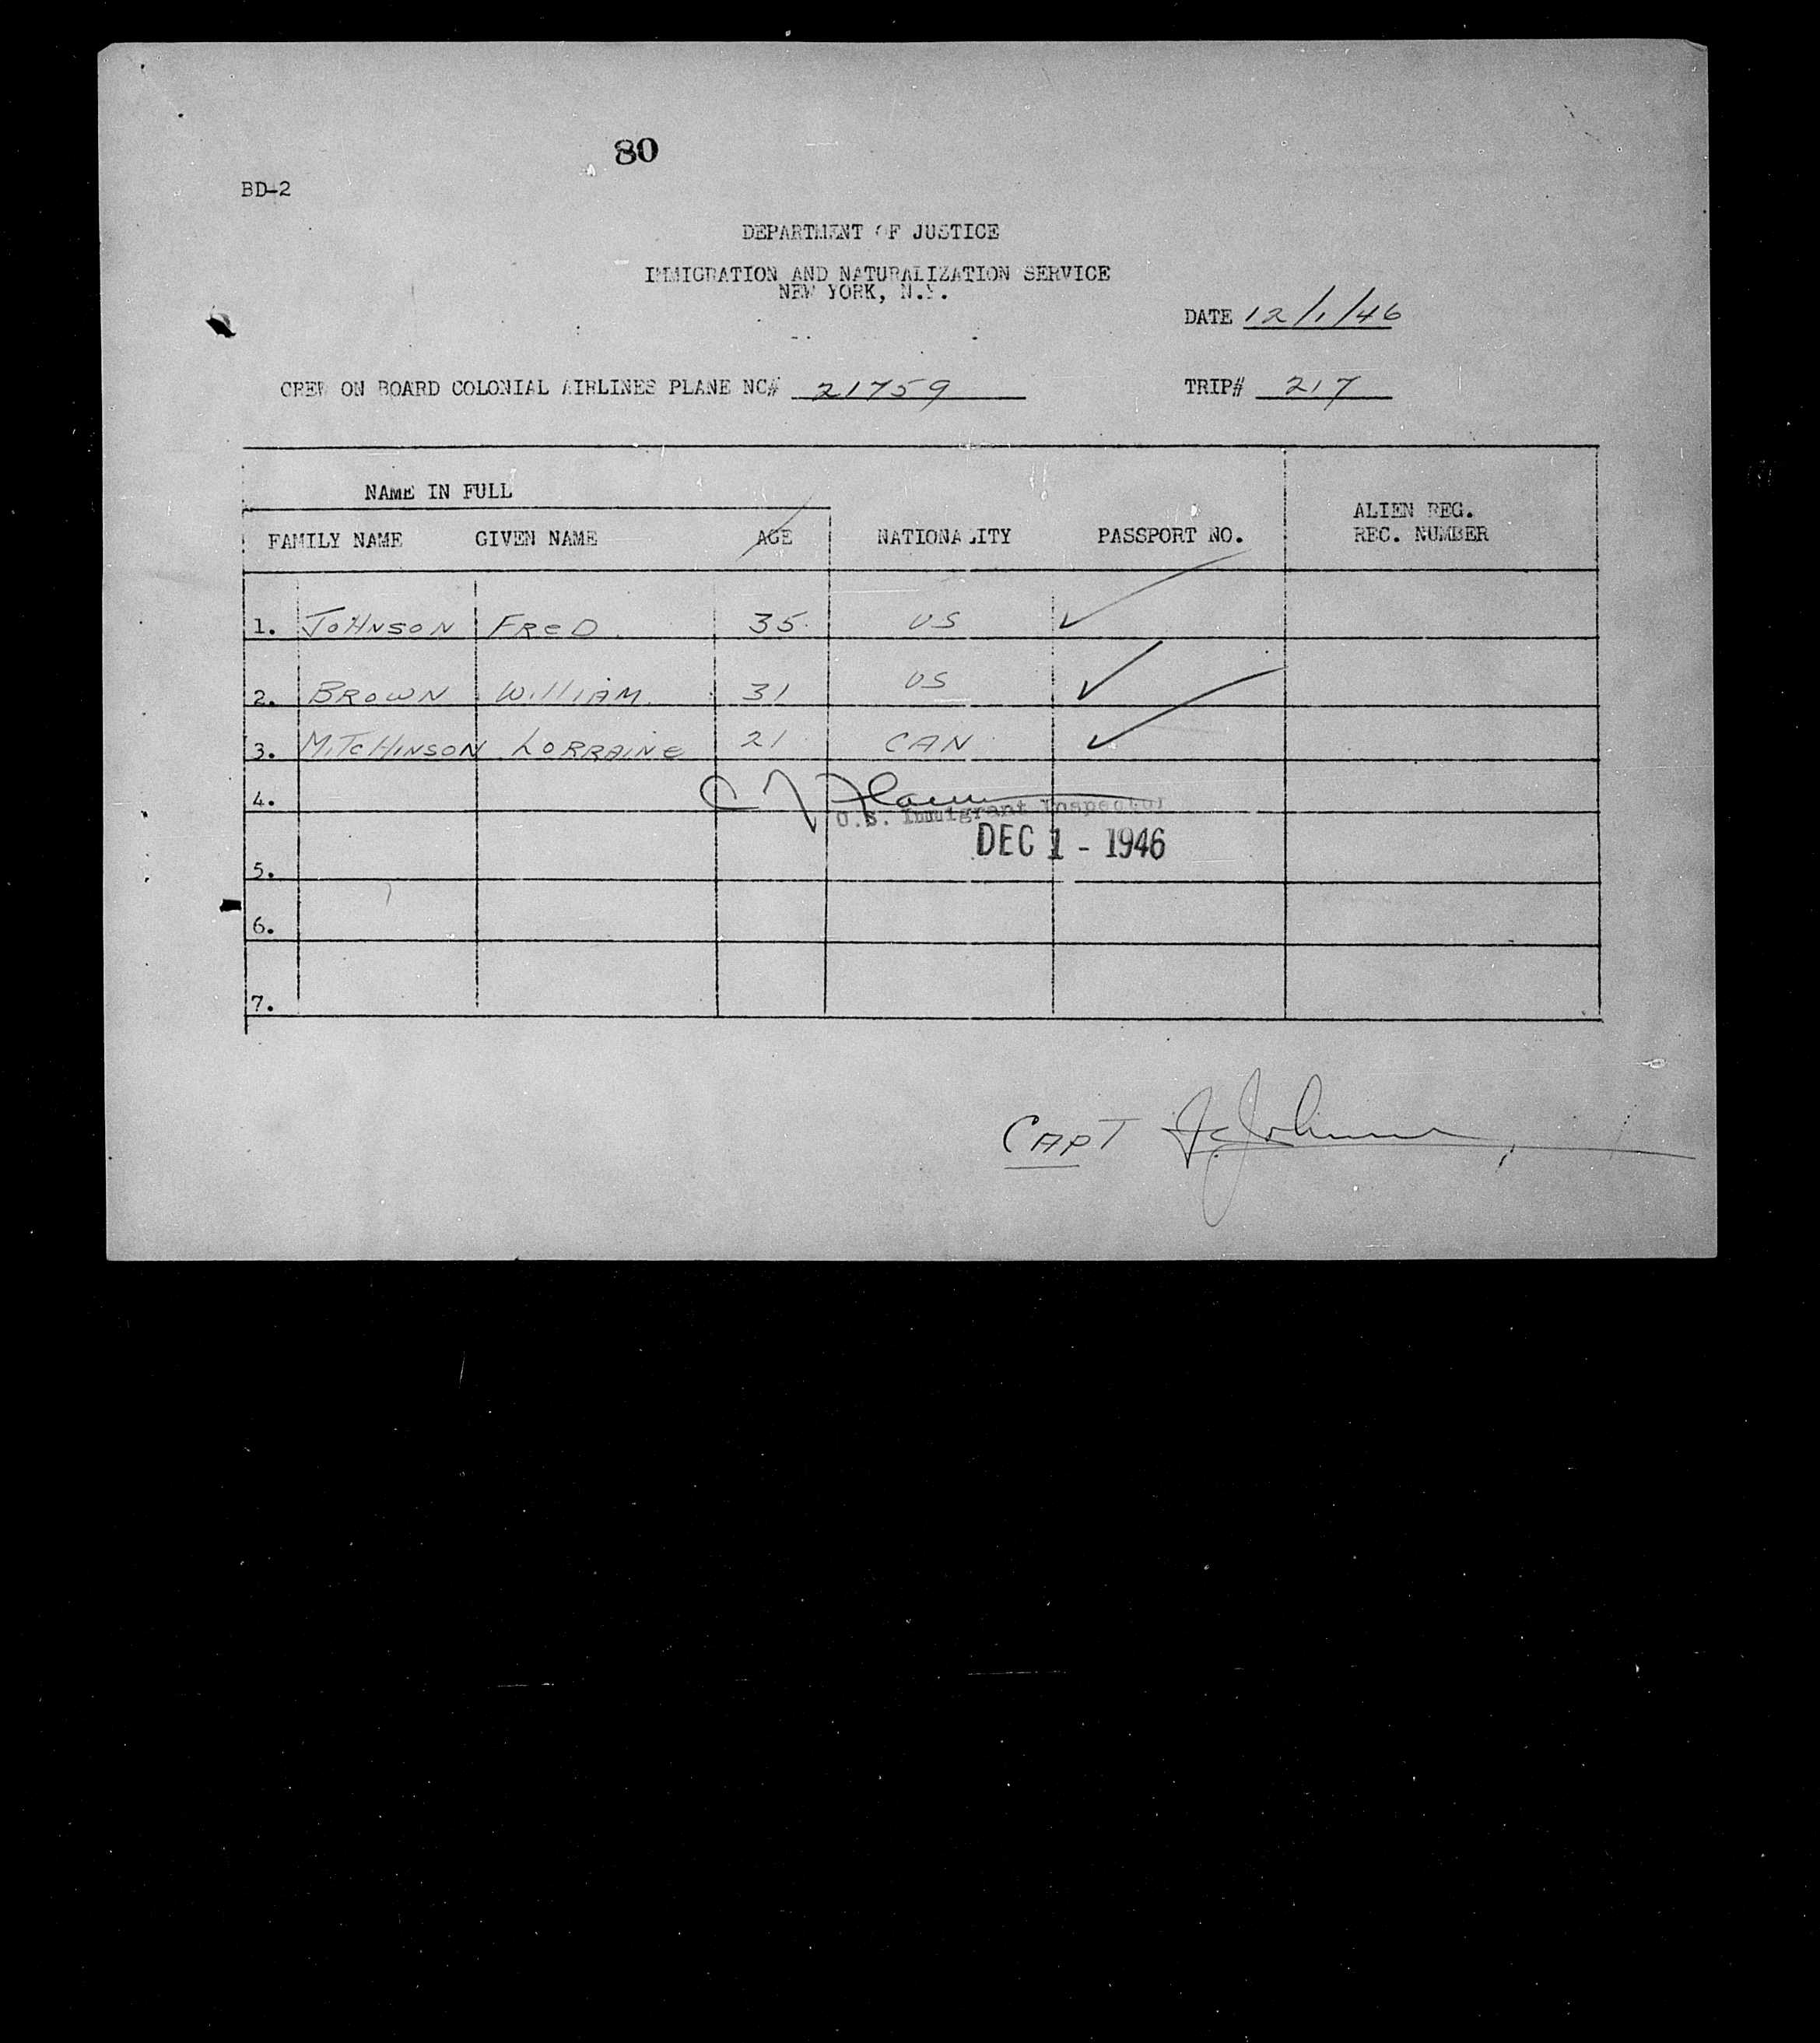 80
BD-2
DEPARTMENT OF JUSTICE
IMMIGRATION AND NATURALIZATION SERVICE
NEW YORK, N.Y.
DATE 12/1/46
CREW ON BOARD COLONIAL AIRLINES PLANE NC# 21759 TRIP# 217
NAME IN FULL
FAMILY NAME GIVEN NAME AGE NATIONALITY PASSPORT NO. ALIEN REG. REC. NUMBER
1. JOHNSON FRED 35 US ✓
2. BROWN WILLIAM 31 US ✓
3. MITCHINSON LORRAINE 21 CAN ✓
4.
U.S. Immigrant Inspector
DEC 1 - 1946
5.
6.
7.
CAPT F. Johnson